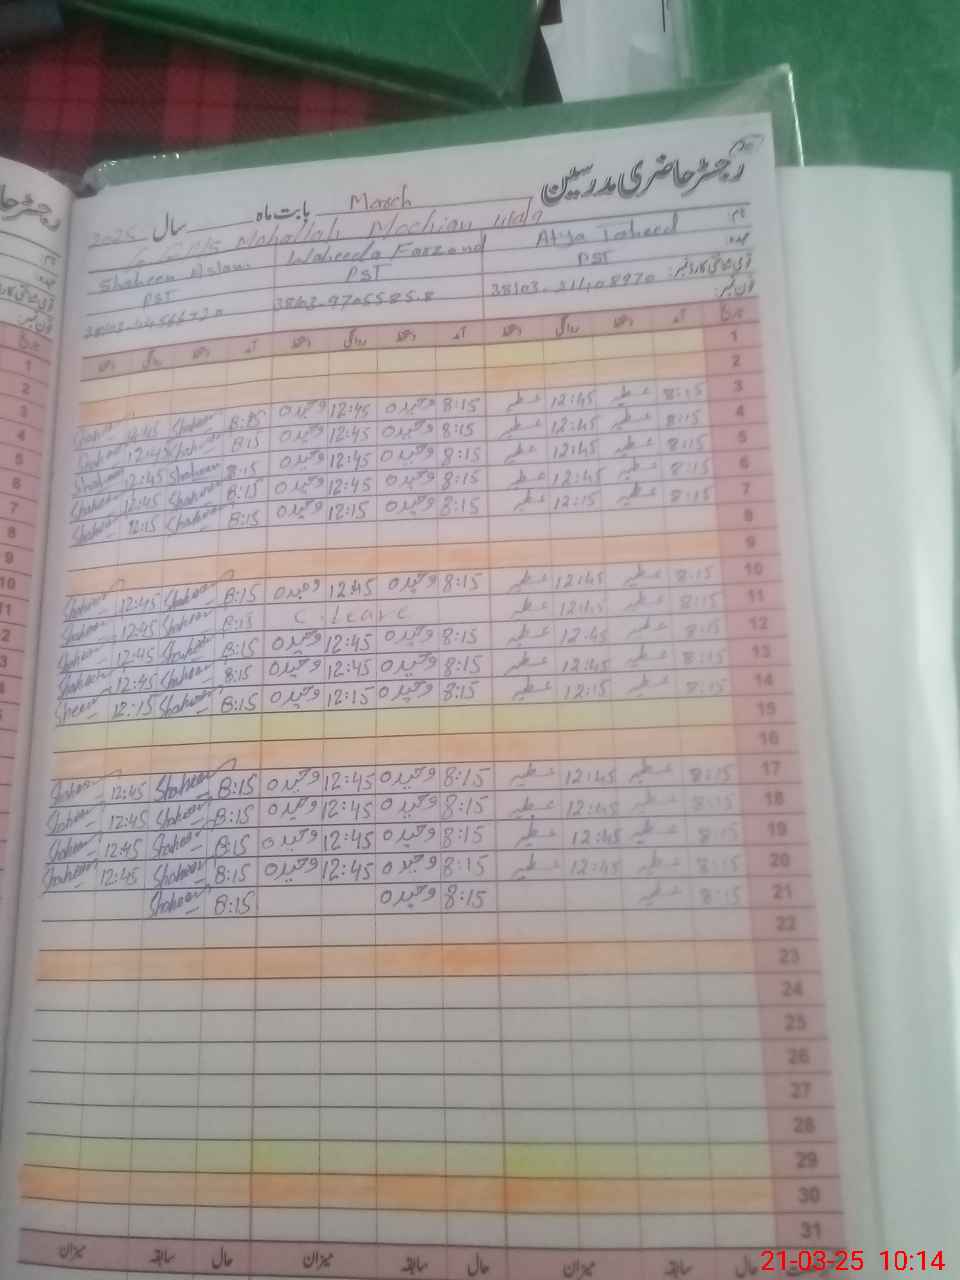 رجسٹر حاضری مدرسین بابت ماہ March سال 2025
G GPS Mohallah Mochian wala
نام Atya Taheed Waheeda Farzand Shaheen Aslam
عہدہ PST PST PST
قومی شناختی کارڈ نمبر:
فون نمبر:
تاریخ آمد دستخط روانگی دستخط آمد دستخط روانگی دستخط آمد دستخط روانگی دستخط
1
2
3 8:15 عطیہ 12:45 عطیہ 8:15 وحیدہ 12:45 وحیدہ 8:15 Shaheen 12:45 Shaheen
4 8:15 عطیہ 12:45 عطیہ 8:15 وحیدہ 12:45 وحیدہ 8:15 Shaheen 12:45 Shaheen
5 8:15 عطیہ 12:45 عطیہ 8:15 وحیدہ 12:45 وحیدہ 8:15 Shaheen 12:45 Shaheen
6 8:15 عطیہ 12:45 عطیہ 8:15 وحیدہ 12:45 وحیدہ 8:15 Shaheen 12:45 Shaheen
7 8:15 عطیہ 12:15 عطیہ 8:15 وحیدہ 12:15 وحیدہ 8:15 Shaheen 12:15 Shaheen
8
9
10 8:15 عطیہ 12:45 عطیہ 8:15 وحیدہ 12:45 وحیدہ 8:15 Shaheen 12:45 Shaheen
11 8:15 عطیہ 12:45 عطیہ C. Leave 8:15 Shaheen 12:45 Shaheen
12 8:15 عطیہ 12:45 عطیہ 8:15 وحیدہ 12:45 وحیدہ 8:15 Shaheen 12:45 Shaheen
13 8:15 عطیہ 12:45 عطیہ 8:15 وحیدہ 12:45 وحیدہ 8:15 Shaheen 12:45 Shaheen
14 8:15 عطیہ 12:15 عطیہ 8:15 وحیدہ 12:15 وحیدہ 8:15 Shaheen 12:15 Sheen
15
16
17 8:15 عطیہ 12:45 عطیہ 8:15 وحیدہ 12:45 وحیدہ 8:15 Shaheen 12:45 Shaheen
18 8:15 عطیہ 12:45 عطیہ 8:15 وحیدہ 12:45 وحیدہ 8:15 Shaheen 12:45 Shaheen
19 8:15 عطیہ 12:45 عطیہ 8:15 وحیدہ 12:45 وحیدہ 8:15 Shaheen 12:45 Shaheen
20 8:15 عطیہ 12:45 عطیہ 8:15 وحیدہ 12:45 وحیدہ 8:15 Shaheen 12:45 Shaheen
21 8:15 عطیہ 8:15 وحیدہ 8:15 Shaheen
22
23
24
25
26
27
28
29
30
31
حال سابقہ میزان حال سابقہ میزان حال سابقہ میزان
21-03-25 10:14